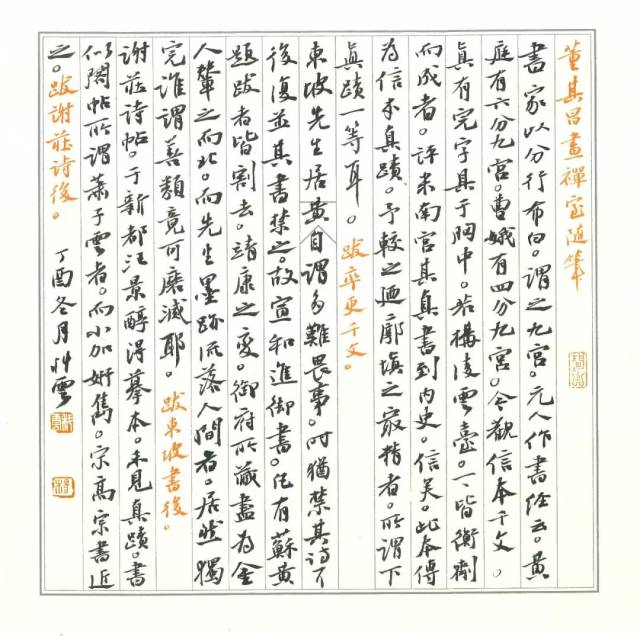 董其昌畫禪室隨筆
書家以分行布白。謂之九宮。元人作書經云。黃
庭有六分九宮。曹娥有四分九宮。今觀信本千文。
真有完字具于胸中。若構凌雲臺。一一皆衡劑
而成者。評米南宮其真書到內史。信矣。此本傳
為信本真蹟。予較之廼廓填之最精者。所謂下
真蹟一等耳。跋率更千文。
東坡先生居黃自謂多難畏事。時猶禁其詩下
後復並其書禁之。故宣和進御書。凡有蘇黃
題跋者皆割去。靖康之變。御府所藏盡為金
人輦之而北。而先生墨跡流落人間者。居然獨
完誰謂善類竟可磨滅耶。跋東坡書後。
謝莊詩帖。于新都汪景醇得摹本。未見真蹟。書
似閣帖所謂蕭子雲者。而小加妍雋。宋高宗書近
之。跋謝莊詩後。丁酉冬月艸雲